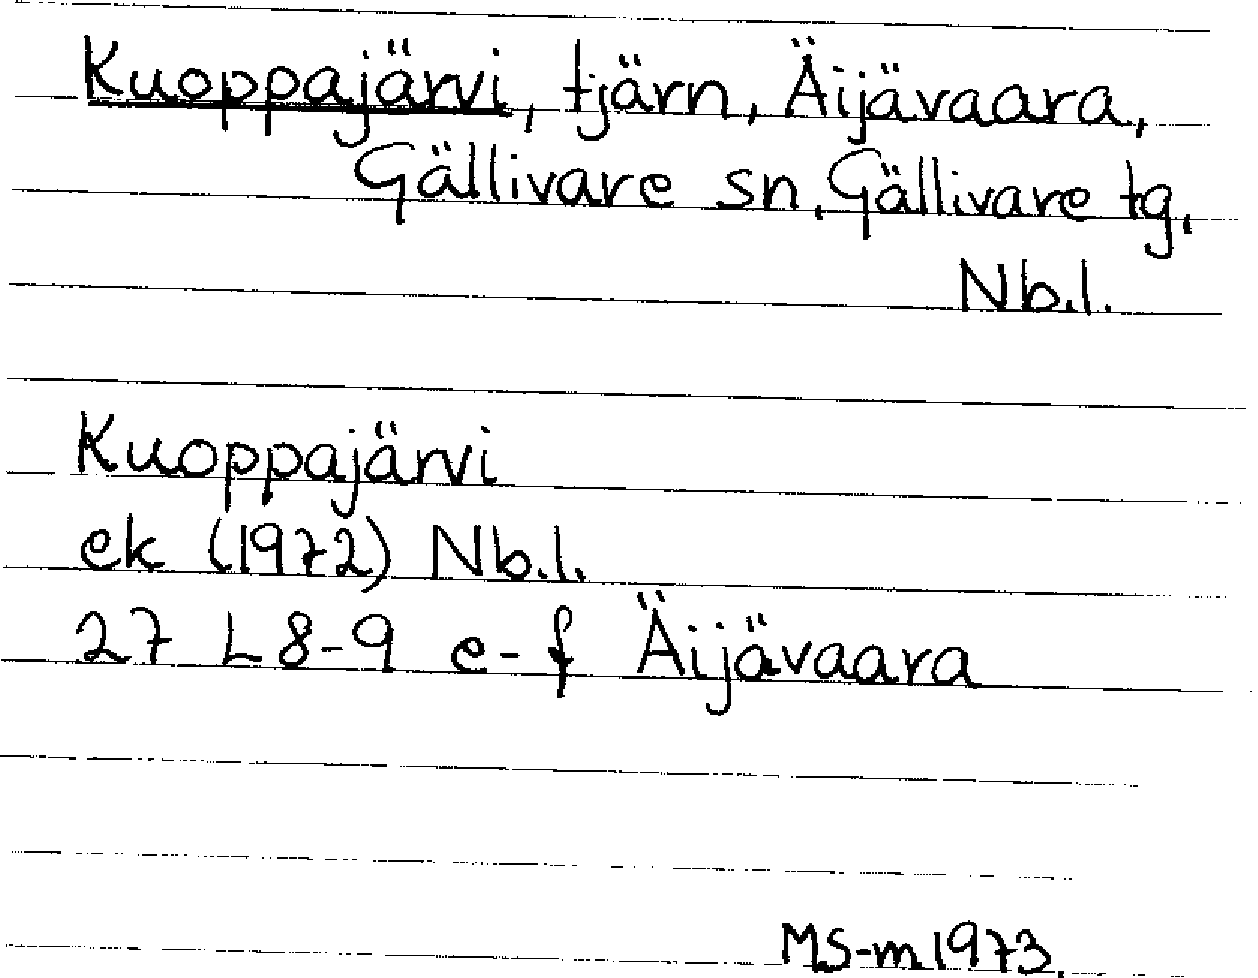 Kuoppajärvi, tjärn, Äijävaara,
Gällivare sn, Gällivare tg,
Nb.l.
Kuoppajärvi
ek (1972) Nb.l.
27 L 8-9 e-f Äijävaara
MS-m 1973.